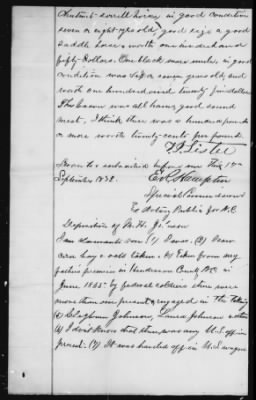 Chestnut sorrell horse in good condition
seven or eight yrs old, good size a good
saddle horse & worth one hundred and
fifty Dollars. One black mare mule, in good
condition was six or seven years old, and
worth one hundred and twenty five dollars
This bacon was all hams good sound
meat, I think there was a hundred pounds
or more worth twenty cents per pound.
Sworn to & subscribed before me this 1
September 1872.
Special Commissioner
Notary Public for N.C.
Deposition of
I am claimants son (1) I was. (2) I saw
corn hay & oats taken. It taken from my
fathers premises in Henderson County N.C. in
June 1865 by federal soldiers there were
more than one present & engaged in the taking
Johnson, Johnson & others
(4) I don't know that there was any U.S. officer
present. (7) It was hauled off in U.S. wagons